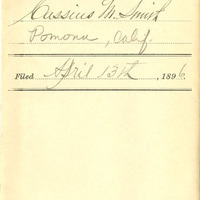 Cassius M. Smith
Pomona, Calif.
Filed April 13th, 1896.